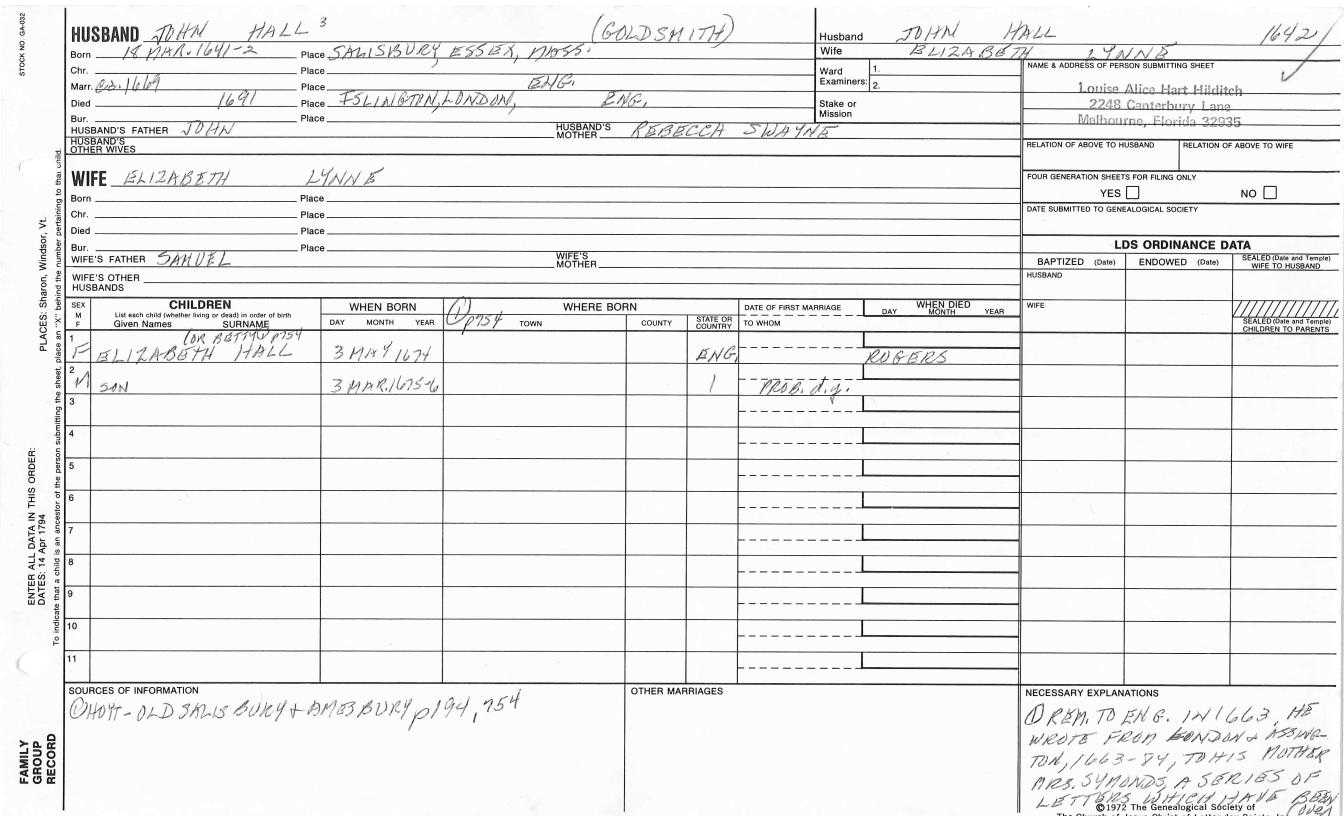 STOCK NO. GA-032
PLACES: Sharon, Windsor, Vt.
ENTER ALL DATA IN THIS ORDER:
DATES: 14 Apr 1794
To indicate that a child is an ancestor of the person submitting the sheet, place an "X" behind the number pertaining to that child.
FAMILY GROUP RECORD
HUSBAND JOHN HALL 3 (GOLDSMITH)
Born 18 MAR. 1641-2 Place SALISBURY, ESSEX, MASS.
Chr. Place
Marr. ca. 1669 Place ENG.
Died 1691 Place ISLINGTON, LONDON, ENG.
Bur. Place
HUSBAND'S FATHER JOHN HUSBAND'S MOTHER REBECCA SWAYNE
HUSBAND'S OTHER WIVES
WIFE ELIZABETH LYNNE
Born Place
Chr. Place
Died Place
Bur. Place
WIFE'S FATHER SAMUEL WIFE'S MOTHER
WIFE'S OTHER HUSBANDS
Husband JOHN HALL 1642
Wife ELIZABETH LYNNE
Ward Examiners: 1.
2.
Stake or Mission
NAME & ADDRESS OF PERSON SUBMITTING SHEET
Louise Alice Hart Hilditch
2248 Canterbury Lane
Melbourne, Florida 32935
RELATION OF ABOVE TO HUSBAND RELATION OF ABOVE TO WIFE
FOUR GENERATION SHEETS FOR FILING ONLY
YES NO
DATE SUBMITTED TO GENEALOGICAL SOCIETY
LDS ORDINANCE DATA
BAPTIZED (Date) ENDOWED (Date) SEALED (Date and Temple) WIFE TO HUSBAND
HUSBAND
WIFE
SEALED (Date and Temple) CHILDREN TO PARENTS
SEX M F
CHILDREN
List each child (whether living or dead) in order of birth
Given Names SURNAME
WHEN BORN
DAY MONTH YEAR
① p754
WHERE BORN
TOWN COUNTY STATE OR COUNTRY
DATE OF FIRST MARRIAGE
TO WHOM
WHEN DIED
DAY MONTH YEAR
(OR BETTY) p754
1 F ELIZABETH HALL 3 MAY 1674 ENG. ROGERS
2 M SON 3 MAR. 1675-6 PROB. d.y.
3
4
5
6
7
8
9
10
11
SOURCES OF INFORMATION
① HOYT - OLD SALISBURY & AMESBURY p194, 754
OTHER MARRIAGES
NECESSARY EXPLANATIONS
① REM. TO ENG. IN 1663, HE
WROTE FROM LONDON & ASSING-
TON, 1663-84, TO HIS MOTHER
MRS. SYMONDS, A SERIES OF
LETTERS WHICH HAVE BEEN
(over)
©1972 The Genealogical Society of
The Church of Jesus Christ of Latter-day Saints, Inc.